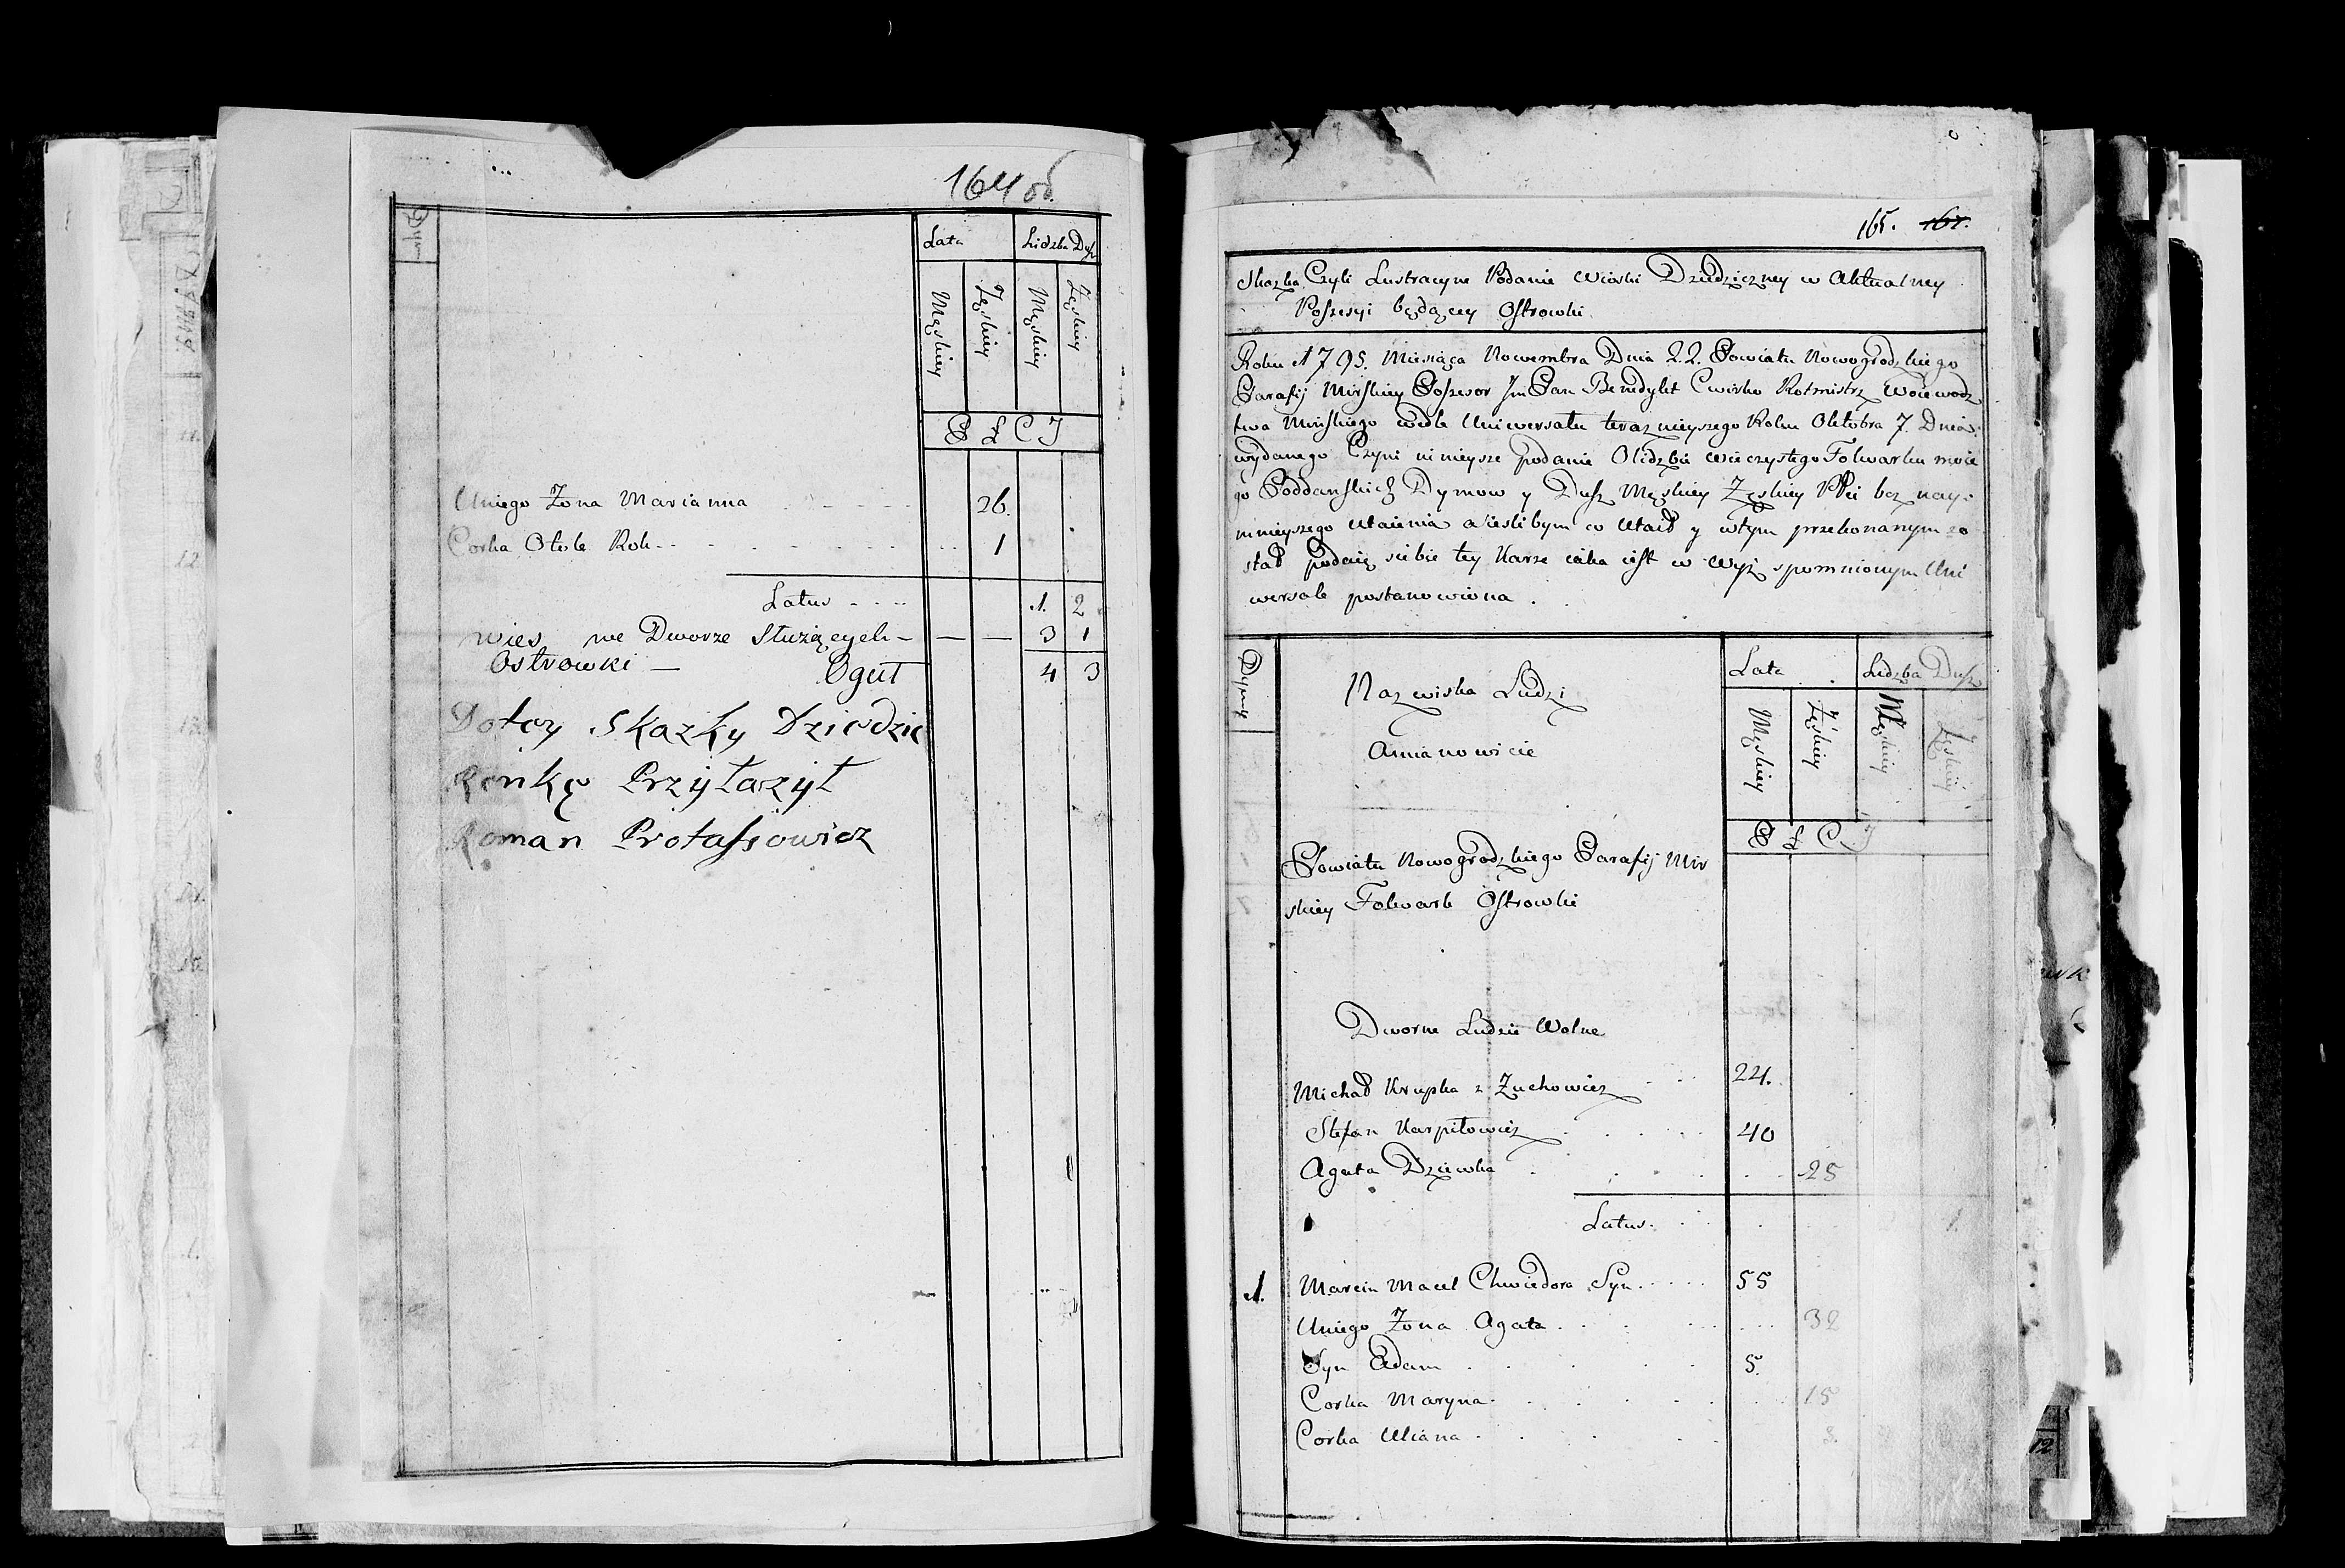 164 об.
Dym
Lata Lidzba Dusz
Męskiey Żęskiey Męskiey Żęskiey
P Ł C I
Uniego Żona Marianna 26.
Corka Otola Rok 1
Latus 1. 2
wies we Dworze Służących 3 1
Ostrowki — Oguł 4 3
Do tey Skazky Dziedzic
Renkę Przyłazył
Roman Protassowicz
165. 167.
Skazka Czyli Lustracyne Podanie Wioski Dziedziczney w Aktualney
Possesyi będącey Ostrowki
Roku 1795. Miesiąca Nowembra Dnia 22. Powiatu Nowogrodzkiego
Parafij Mirskiey Possesor Jm Pan Benedykt Cwirko Rotmistrz Woiewodz
twa Mińskiego wedle Uniwersału teraznieyszego Roku Oktobra 7. Dnia
wydanego Czyni nineysze podanie O lidzbie wieczystego Folwarku moie
go Poddanskich Dymow y Dusz Męskiey Żęskiey Płci bez nay-
mnieyszego utaienia a ieslibym co Utaił y wtym przekonanym zo
stał podaię siebie tey Karze iaka iest w wyż spomnionym Uni
wersale postanowiona.
Dymy
Nazwiska Ludzi
Amianowicie
Lata Lidzba Dusz
Męskiey Żęskiey Męskiey Żęskiey
P Ł C I
Powiatu Nowogrodzkiego Parafij Mir
skiey Folwark Ostrowki
Dworne Ludzie Wolne
Michał Krupka z Żuchowicz 24.
Stefan Karpiłowicz 40
Agata Dziewka 25
Latus 1.
1. Marcin Macel Chwiedora Syn 55
Uniego Żona Agata 32
Syn Adam 5.
Corka Maryna 15
Corka Uliana 8.